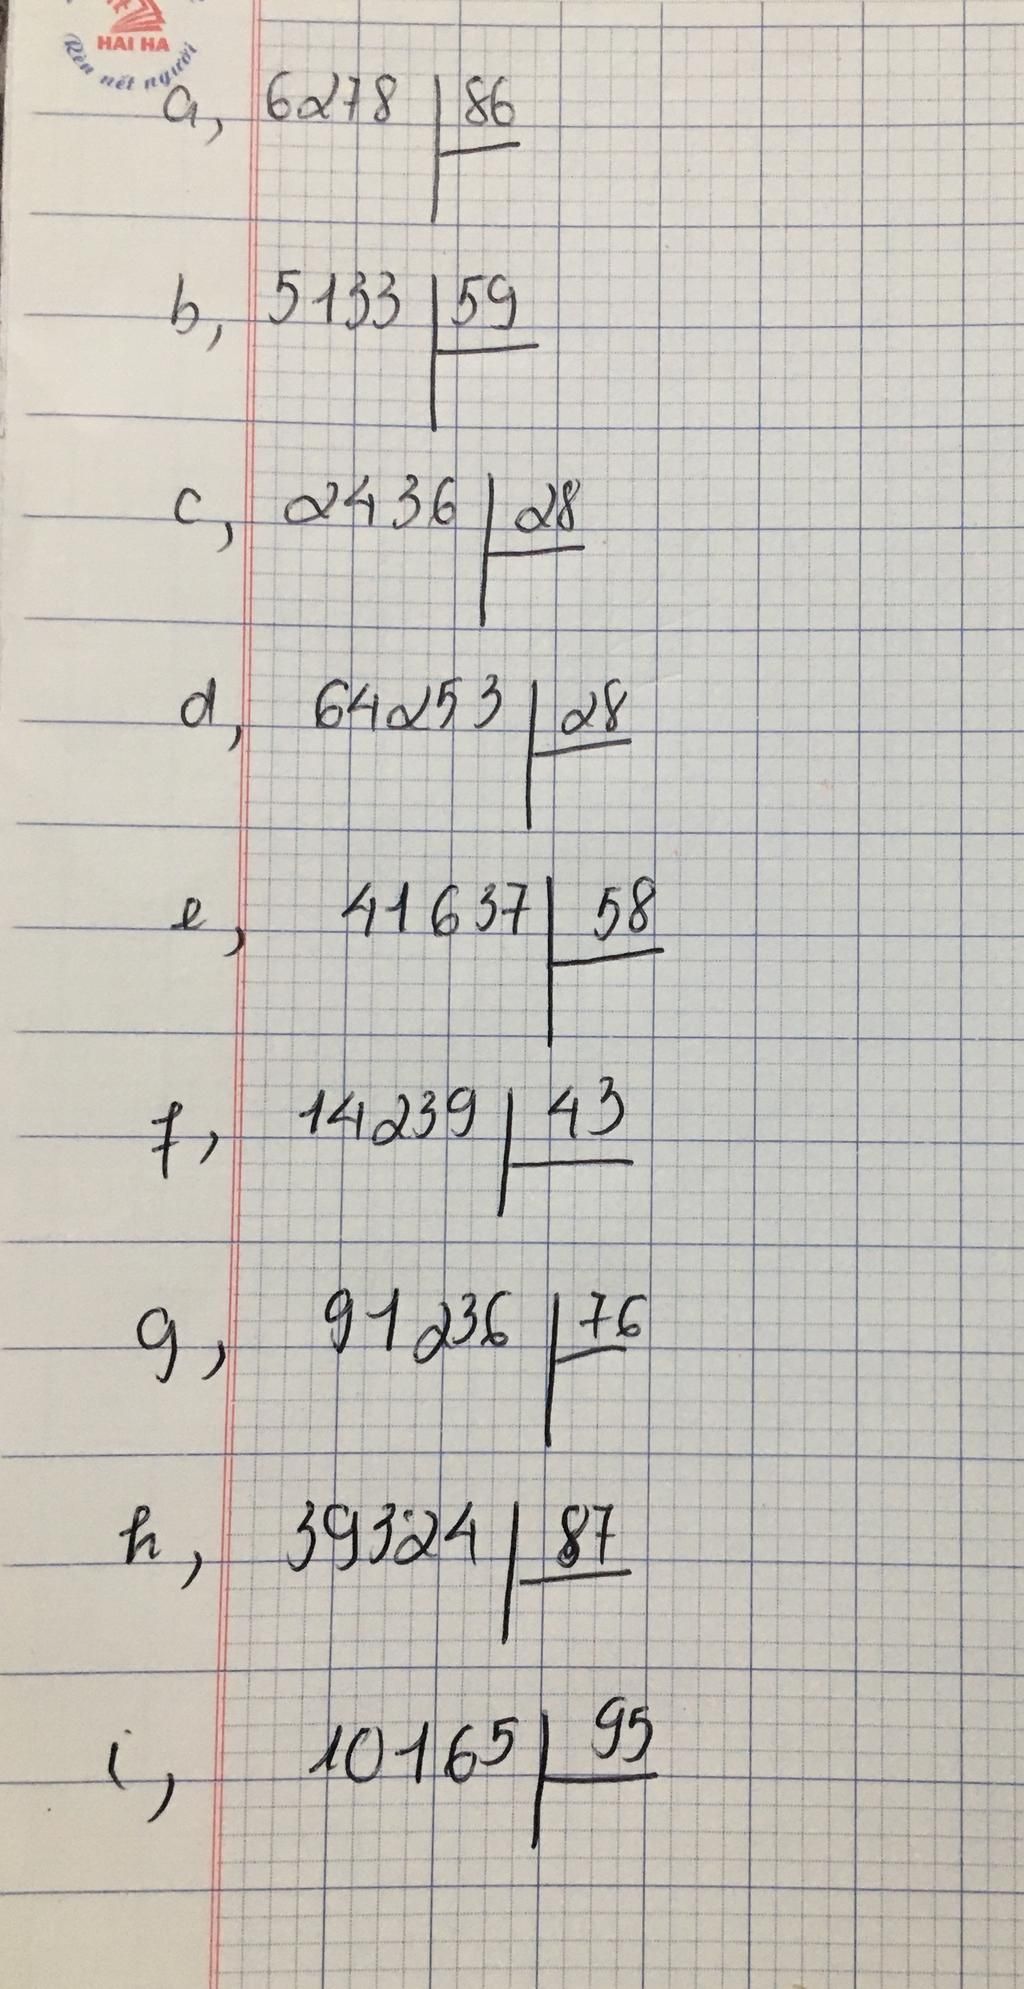 HAI HA
Rèn nết người
a, 6278 | 86
b, 5133 | 59
c, 2436 | 28
d, 64253 | 28
e, 41637 | 58
f, 14239 | 43
g, 91236 | 76
h, 39324 | 87
i, 10165 | 95